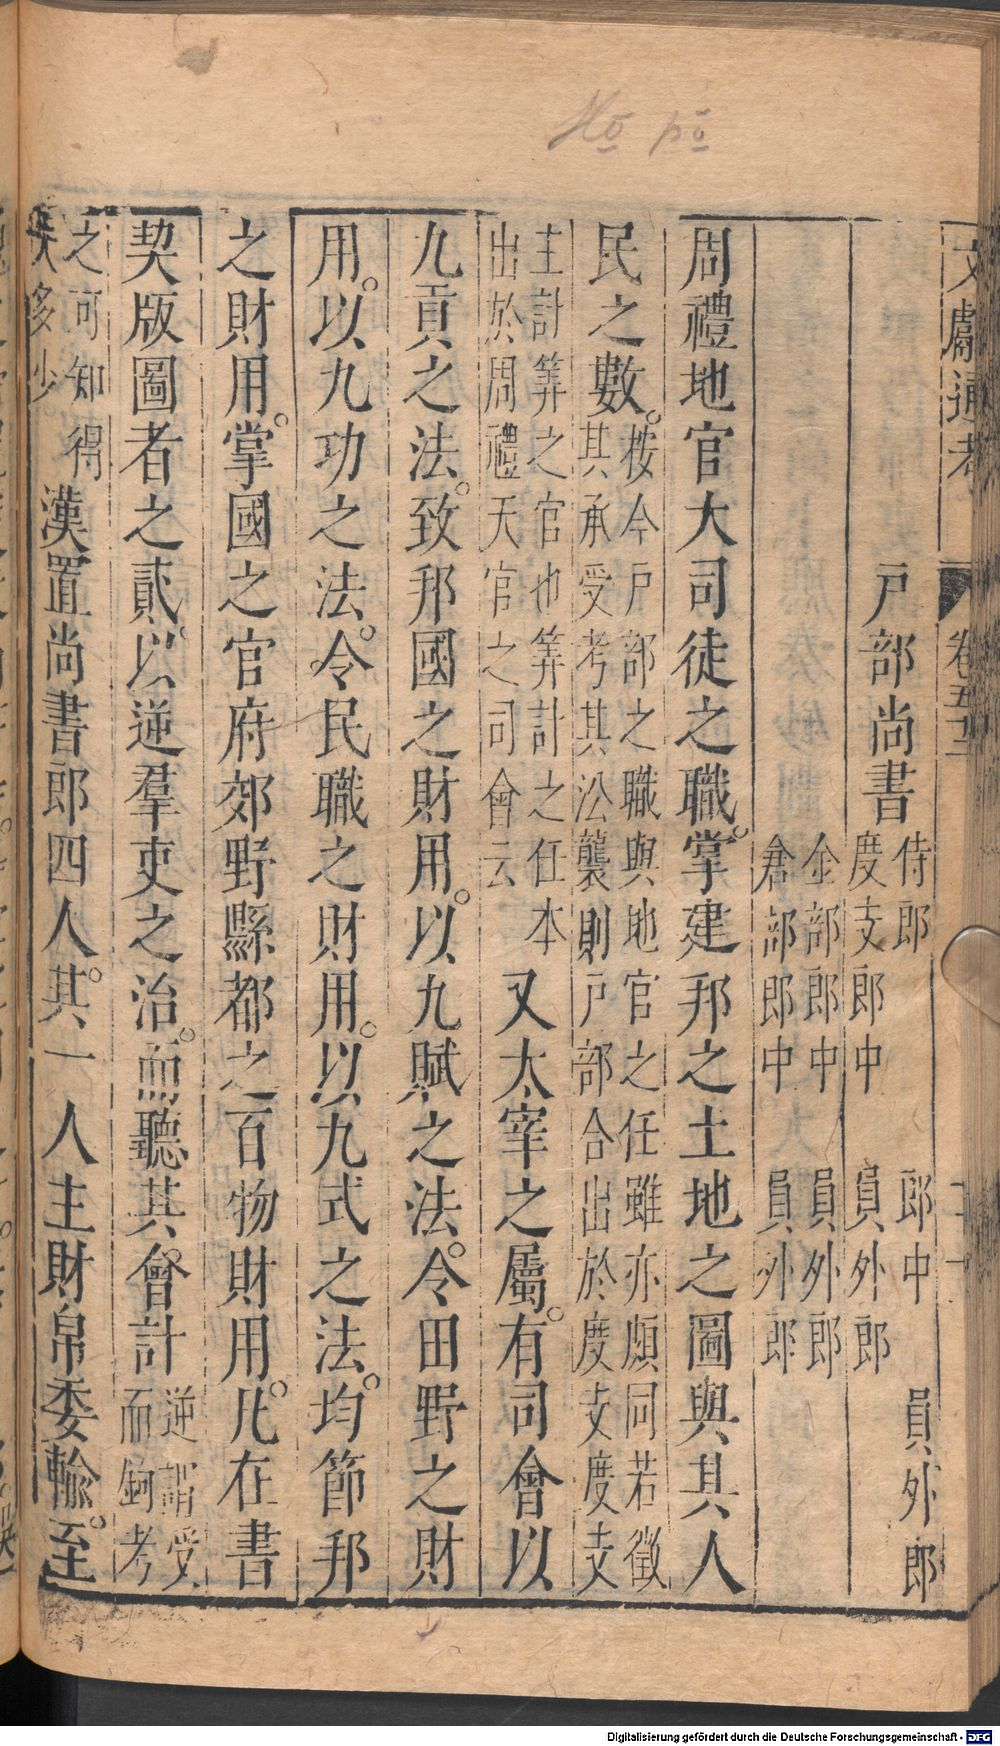 文獻通考 卷五十二
戶部尚書 侍郎 郎中 員外郎
度支郎中 員外郎
金部郎中 員外郎
倉部郎中 員外郎
周禮地官大司徒之職掌建邦之土地之圖與其人
民之數。按今戶部之職與地官之任雖亦頗同若徵
其承受考其沿襲則戶部合出於度支度支
主計筭之官也筭計之任本
出於周禮天官之司會云
又太宰之屬。有司會以
九貢之法。致邦國之財用。以九賦之法。令田野之財
用。以九功之法。令民職之財用。以九式之法。均節邦
之財用。掌國之官府郊野縣都之百物財用。凡在書
契版圖者之貳。以逆羣吏之治。而聽其會計 逆謂受
而鉤考
之可知得
失多少。
漢置尚書郎四人。其一人主財帛委輸。至
Digitalisierung gefördert durch die Deutsche Forschungsgemeinschaft - DFG